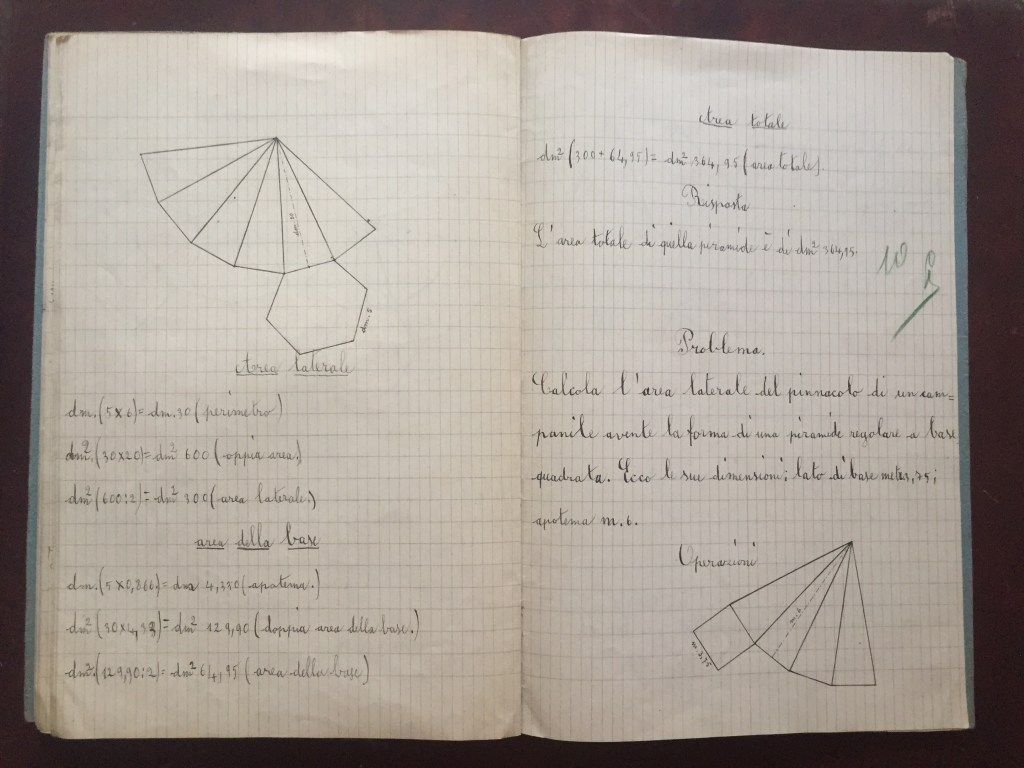 dm. 5
Area laterale
dm. (5 x 6) = dm. 30 (perimetro)
dm². (30 x 20) = dm² 600 (oppia area.)
dm² (600:2) = dm² 300 (area laterale.)
area della base
dm. (5 x 0,866.) = dm 4,330 (apotema.)
dm² (30 x 4,33) = dm² 129,90 (doppia area della base.)
dm². (129,90:2) = dm² 64,95 (area della base)
Area totale
dm² (300 + 64,95) = dm² 364,95 (area totale).
Risposta
L'area totale di quella piramide è di dm² 364,95.
10
Problema.
Calcola l'area laterale del pinnacolo di un cam=
panile avente la forma di una piramide regolare a base
quadrata. Ecco le sue dimensioni: lato di base
apotema m. 6.
Operazioni
m. 6